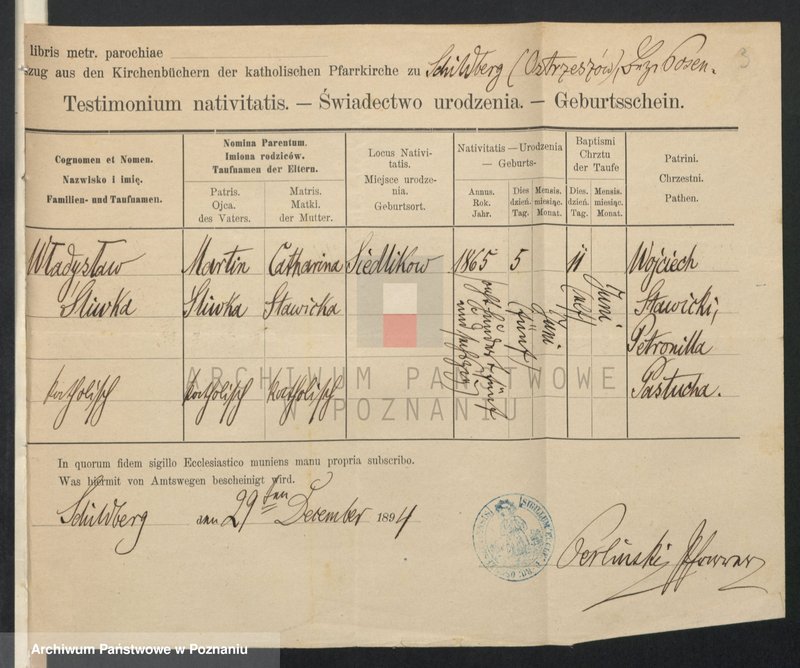 libris metr. parochiae
szug aus den Kirchenbüchern der katholischen Pfarrkirche zu Schildberg (Ostrzeszów), Bez. Posen.
3
Testimonium nativitatis. — Świadectwo urodzenia. — Geburtsschein.
Cognomen et Nomen.
Nazwisko i imię.
Familien- und Taufnamen.
Nomina Parentum.
Imiona rodziców.
Taufnamen der Eltern.
Patris.
Ojca.
des Vaters.
Matris.
Matki.
der Mutter.
Locus Nativi-
tatis.
Miejsce urodze-
nia.
Geburtsort.
Nativitatis — Urodzenia
— Geburts-
Annus.
Rok.
Jahr.
Dies
dzień.
Tag.
Mensis.
miesiąc.
Monat.
Baptismi
Chrztu
der Taufe
Dies.
dzień.
Tag.
Mensis.
miesiąc.
Monat.
Patrini.
Chrzestni.
Pathen.
Władysław Martin Catharina Siedlikow 1865 5 11 Wojciech
Śliwka Śliwka Stawicka Stawicki,
Petronilla
katholisch katholisch katholisch Pastucha.
fünf
Juni
elf
Juni
ARCHIWUM PAŃSTWOWE
W POZNANIU
In quorum fidem sigillo Ecclesiastico muniens manu propria subscribo.
Was hiermit von Amtswegen bescheinigt wird.
Schildberg den 29ten December 1894
Perliński Pfarrer
Archiwum Państwowe w Poznaniu